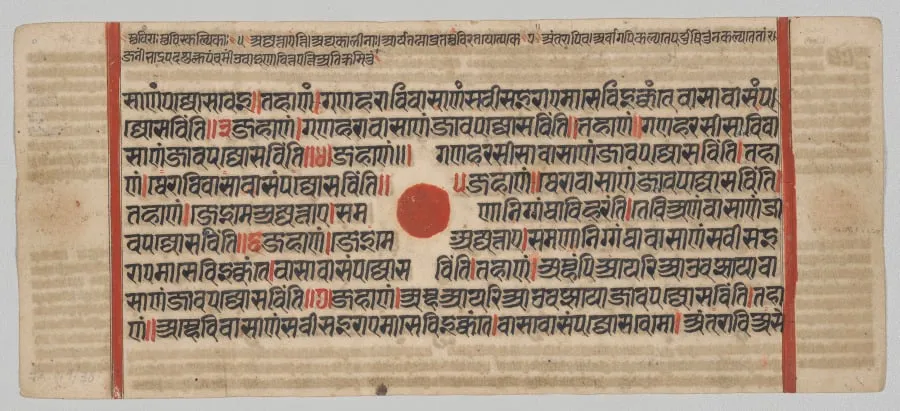 स्थविराः स्थविरकल्पिकाः ५ अज्जत्ताएत्ति अद्यकालीना
साणं पज्जोसवेइ। तहाणं। गणहरावि वासाणं सवीसइराए मासे विइक्कंते वासावासं प
ज्जोसविंति॥३ जहाणं। गणहरा वासाणं जाव पज्जोसविंति। तहाणं। गणहरसीसावि वा
साणं जाव पज्जोसविंति॥४॥ जहाणं॥। गणहरसीसा वासाणं जाव पज्जोसविंति। तहा
णं। थेरावि वासावासं पज्जोसविंति॥ ५ जहाणं। थेरा वासाणं जाव पज्जोसविंति।
तहाणं। जे इमे अज्जत्ताए। सम णा निग्गंथा विहरंति। तेविअणं वासाणं जा
व पज्जोसविंति॥६ जहाणं। जे इमे अज्जत्ताए। समणा निग्गंथा वासाणं सवीसइ
राए मासे विइक्कंते। वासावासं पज्जोस विंति। तहाणं। अम्हंपि आयरिआ उवज्झाया वा
साणं जाव पज्जोसविंति॥७ जहाणं। अम्हं आयरिआ उवज्झाया जाव पज्जोसविंति। तहा
णं॥ अम्हेवि वासाणं सवीसइराए मासे विइक्कंते। वासावासं पज्जोसवेमो। अंतरावि असे